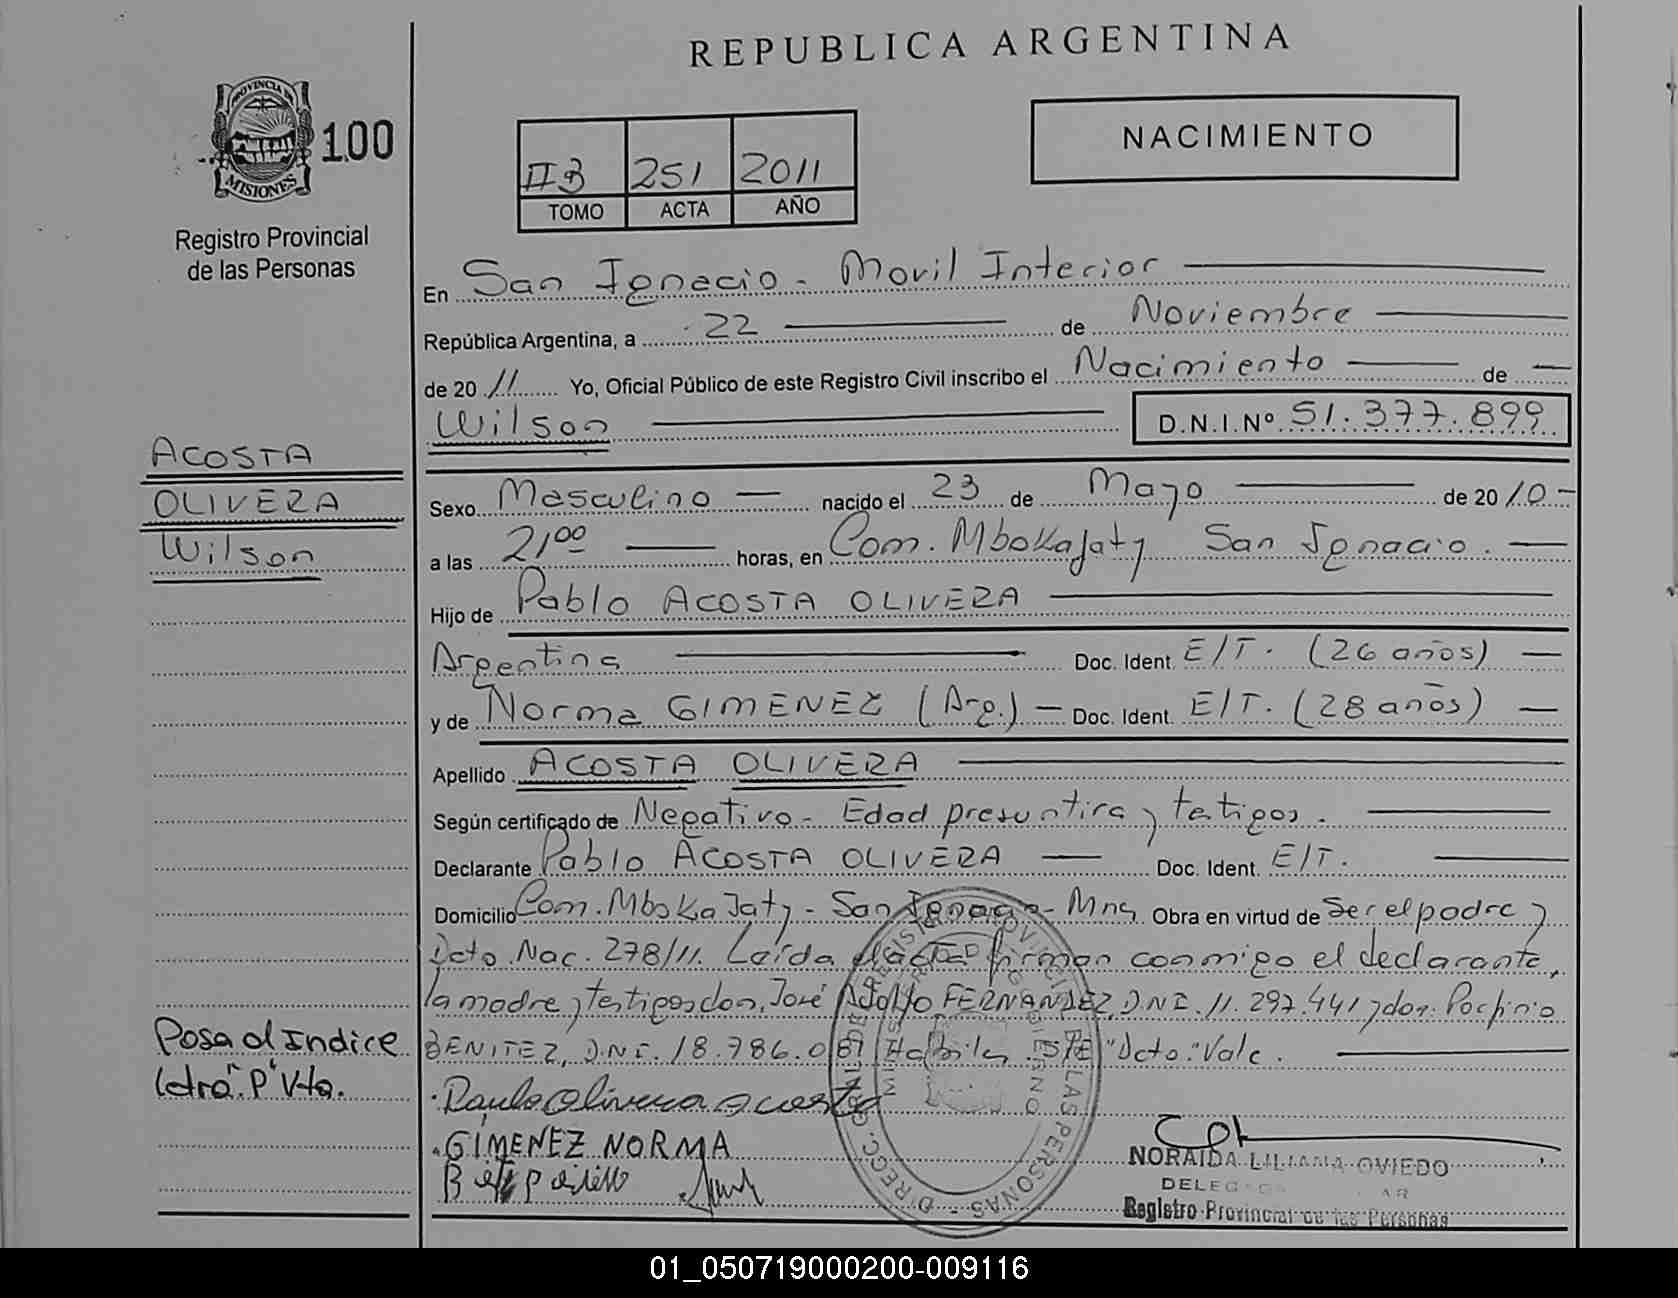 REPUBLICA ARGENTINA
PROVINCIA DE
MISIONES
100
Registro Provincial
de las Personas
NACIMIENTO
II B 251 2011
TOMO ACTA AÑO
En San Ignacio - Movil Interior
República Argentina, a 22 de Noviembre
de 2011 Yo, Oficial Público de este Registro Civil inscribo el Nacimiento de
Wilson D.N.I.Nº 51.377.899
ACOSTA
OLIVERA
Wilson
Sexo Masculino nacido el 23 de Mayo de 2010
a las 21,00 horas, en Com. Mbokajaty San Ignacio.
Hijo de Pablo ACOSTA OLIVERA
Argentina Doc. Ident. E/T. (26 años)
y de Norma GIMENEZ (Arg.) - Doc. Ident. E/T. (28 años)
Apellido ACOSTA OLIVERA
Según certificado de Negativo - Edad presuntiva y testigos.
Declarante Pablo ACOSTA OLIVERA Doc. Ident. E/T.
Domicilio Com. Mboka Jaty - San Ignacio - Mns. Obra en virtud de Ser el padre y
Dcto. Nac. 278/11. Leída el acta firman conmigo el declarante,
la madre y testigos don José Adolfo FERNANDEZ, D.N.I. 11.297.441 y don Porfirio
BENITEZ, D.N.I. 18.786.081 S/E "Dcto." Vale.
Pasa al Indice
letra "P" Vta.
Paulo Olivera Acosta
GIMENEZ NORMA
NORAIDA LILIANA OVIEDO
Registro Provincial de las Personas
01_050719000200-009116